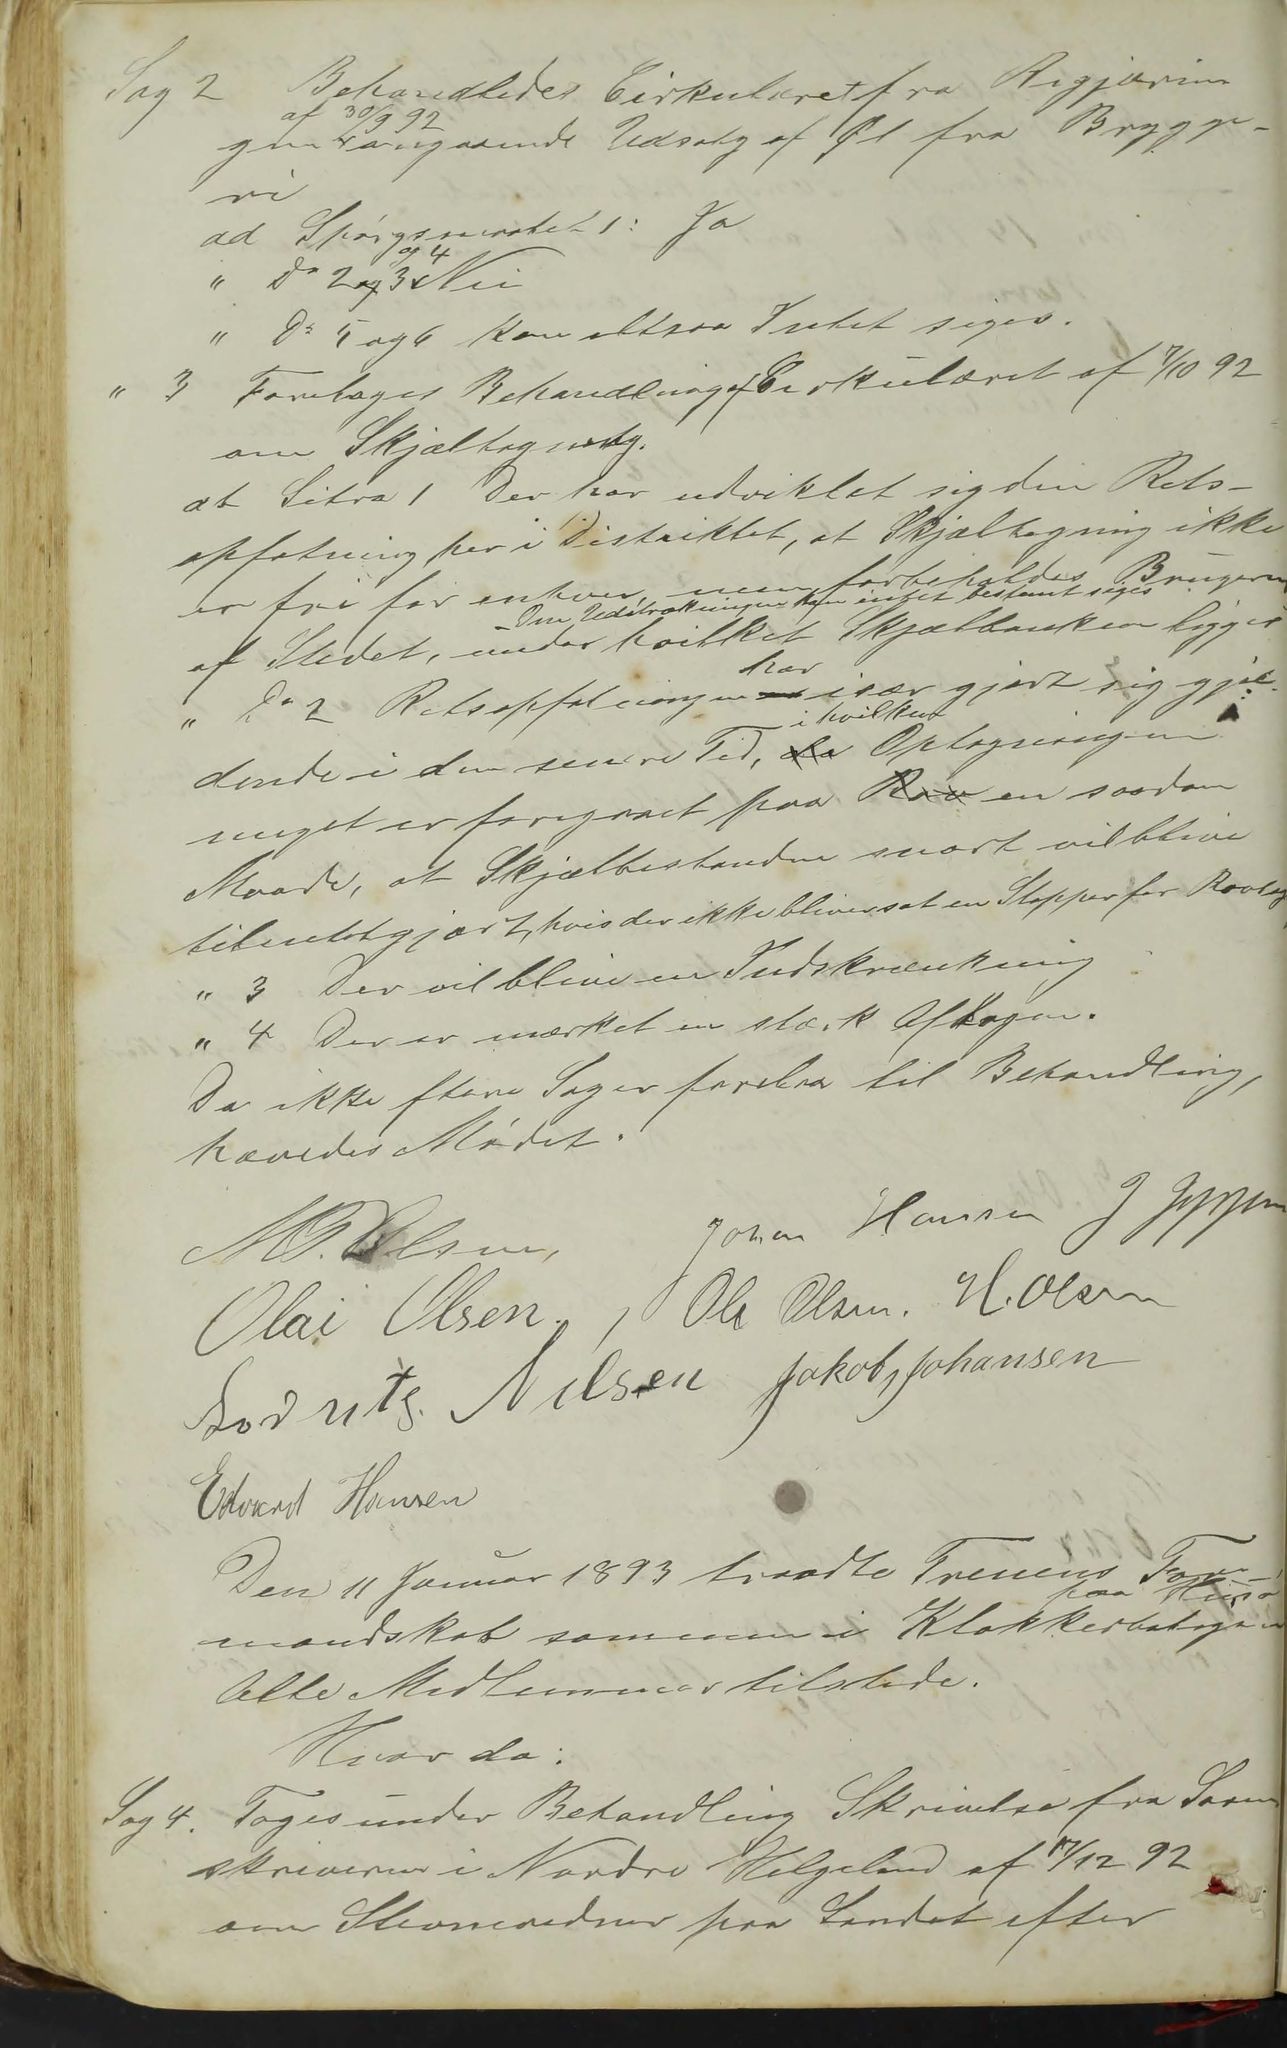 Sag 2 Behandledes Cirkulæret fra Regjærin
gen af 30/9 92 angaaende Udsalg af Øl fra Brygge-
ri
ad Spørgsmaalet 1: Ja
" Do 2 og 3 og 4 Nei
" Do 5 og 6 kan altsaa Intet siges.
" 3 Foretages Behandling af Cirkulæret af 7/10 92
om Skjæltagning.
at Litra 1 Der har udviklet sig den Rets-
opfatning her i Distriktet, at Skjæltagning ikke
er fri for enhver, men forbeholdes Brugeren
Om Udstrækningen kan intet bestemt siges
af Stedet, under hvilket Skjælbanken ligger
" Do 2 Retsopfatningen har især gjort sig gjæl-
dende i den senere Tid, i hvilken Optagningen
meget er foregaaet paa en saadan
Maade, at Skjælbestanden snart vil blive
tilintetgjort, hvis der ikke bliver sat en Stopper for
" 3 Der vil blive en Indskrænkning
" 4 Der er mærket en stærk Aftagen.
Da ikke flere Sager forelaa til Behandling,
hævedes Mødet.
M. P. Olsen, Johan Hansen J Jeppesen
Olai Olsen, Ole Olsen. H. Olsen
Nilsen Jakob Johansen
Edvard Hansen
Den 11 Januar 1893 traadte Trenens For-
paa Husø
mandskab sammen i Klokkerboligen
Alle Medlemmer tilstede.
Hvor da:
Sag 4. Toges under Behandling Skrivelse fra Soren
skriveren i Nordre Helgeland af 17/12 92
om Stevneredner paa Landet efter